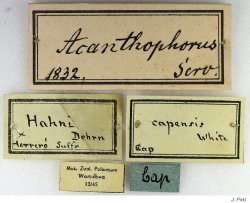 Acanthophorus
1832. Serv.
Hahni
x Dohrn
Herreró Suffr
capensis
White
Cap
Mus. Zool. Polonicum
Warszawa
12/45
Cap
J. Pohl